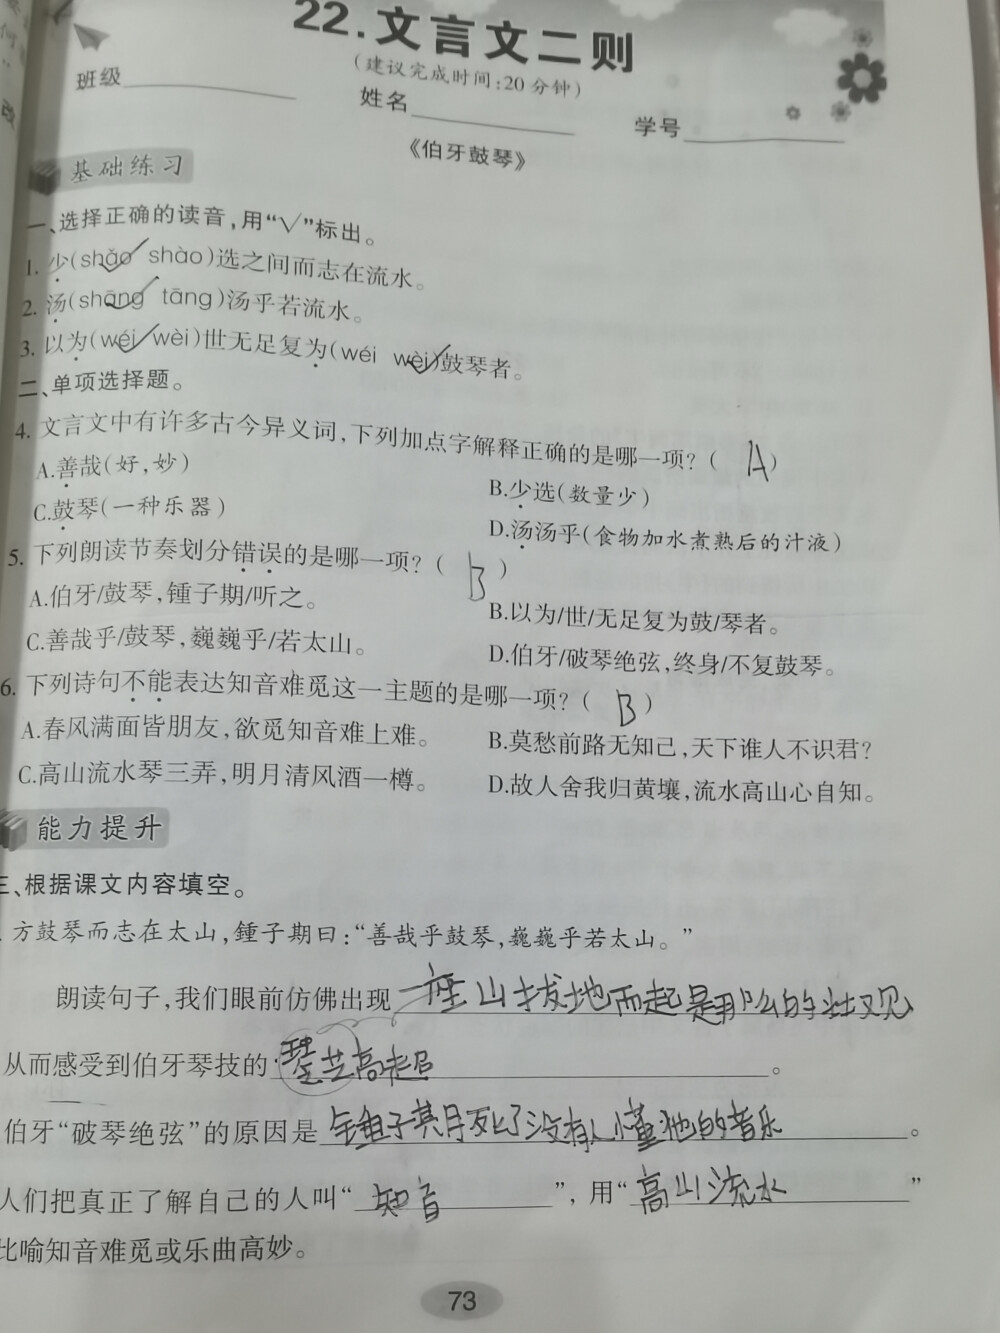 22.文言文二则
(建议完成时间:20分钟)
班级 姓名 学号
《伯牙鼓琴》
基础练习
一、选择正确的读音,用“√”标出。
1. 少(shǎo shào)选之间而志在流水。
2. 汤(shāng tāng)汤乎若流水。
3. 以为(wéi wèi)世无足复为(wéi wèi)鼓琴者。
二、单项选择题。
4. 文言文中有许多古今异义词,下列加点字解释正确的是哪一项?( A )
A.善哉(好,妙) B.少选(数量少)
C.鼓琴(一种乐器) D.汤汤乎(食物加水煮熟后的汁液)
5. 下列朗读节奏划分错误的是哪一项?( B )
A.伯牙/鼓琴,锺子期/听之。 B.以为/世/无足复为鼓/琴者。
C.善哉乎/鼓琴,巍巍乎/若太山。 D.伯牙/破琴绝弦,终身/不复鼓琴。
6. 下列诗句不能表达知音难觅这一主题的是哪一项?( B )
A.春风满面皆朋友,欲觅知音难上难。 B.莫愁前路无知己,天下谁人不识君?
C.高山流水琴三弄,明月清风酒一樽。 D.故人舍我归黄壤,流水高山心自知。
能力提升
三、根据课文内容填空。
方鼓琴而志在太山,锺子期曰:“善哉乎鼓琴,巍巍乎若太山。”
朗读句子,我们眼前仿佛出现一座山拔地而起是那么的壮观
从而感受到伯牙琴技的琴艺高超。
伯牙“破琴绝弦”的原因是锺子期死了没有人懂他的音乐。
人们把真正了解自己的人叫“知音”,用“高山流水”
比喻知音难觅或乐曲高妙。
73